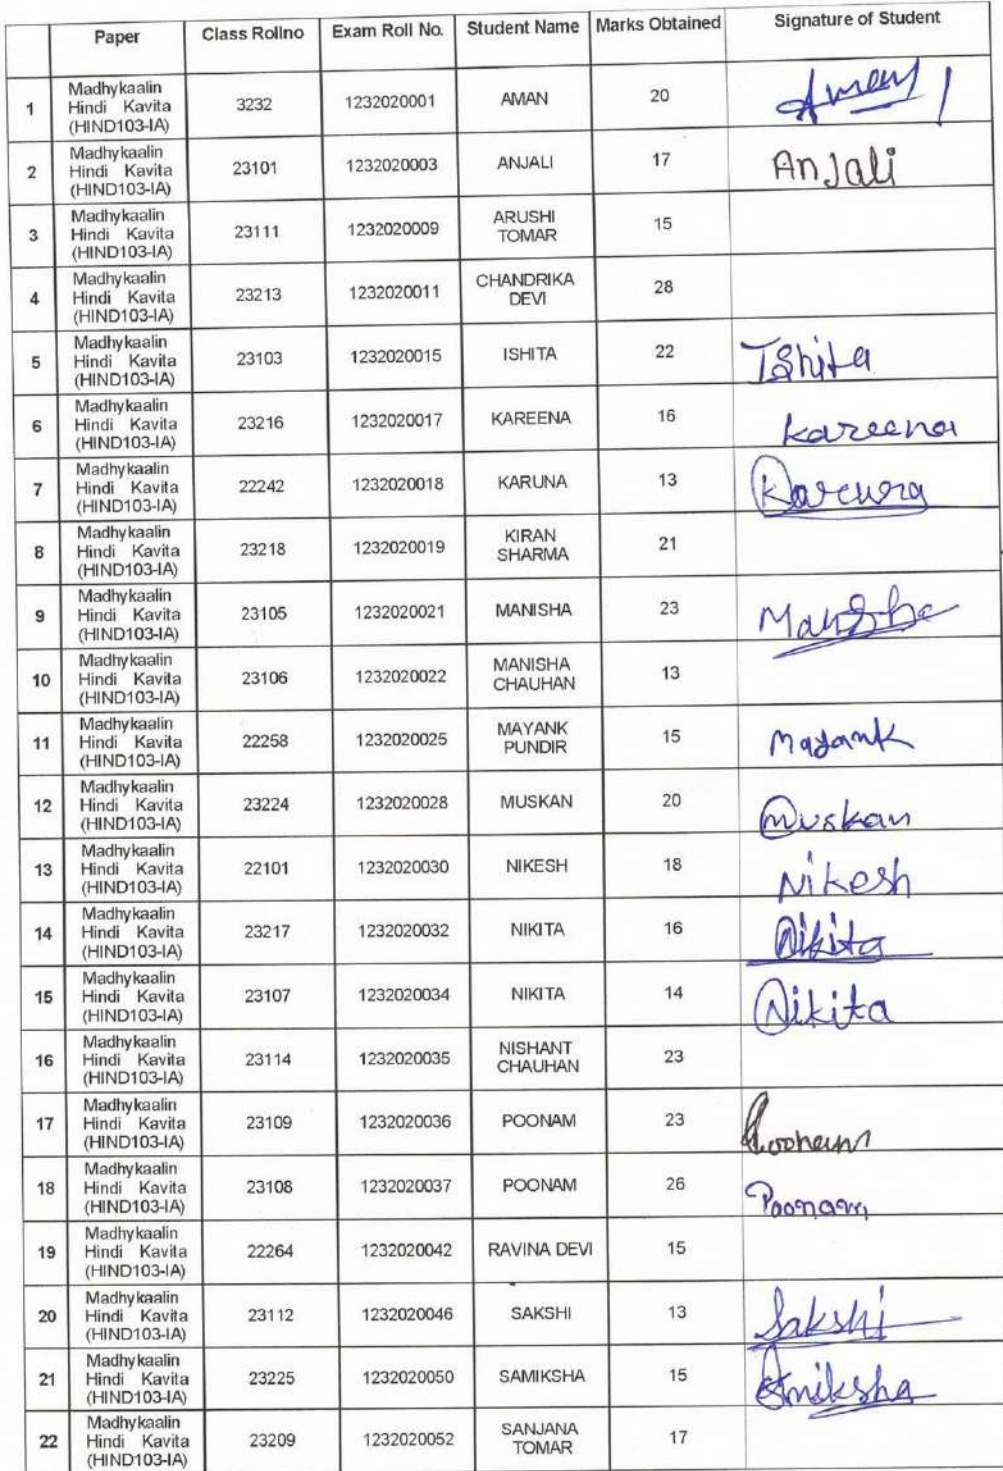 Paper Class Rollno Exam Roll No. Student Name Marks Obtained Signature of Student
1 Madhykaalin Hindi Kavita (HIND103-IA) 3232 1232020001 AMAN 20 Aman
2 Madhykaalin Hindi Kavita (HIND103-IA) 23101 1232020003 ANJALI 17 AnJali
3 Madhykaalin Hindi Kavita (HIND103-IA) 23111 1232020009 ARUSHI TOMAR 15
4 Madhykaalin Hindi Kavita (HIND103-IA) 23213 1232020011 CHANDRIKA DEVI 28
5 Madhykaalin Hindi Kavita (HIND103-IA) 23103 1232020015 ISHITA 22 Ishita
6 Madhykaalin Hindi Kavita (HIND103-IA) 23216 1232020017 KAREENA 16 kareena
7 Madhykaalin Hindi Kavita (HIND103-IA) 22242 1232020018 KARUNA 13 Karuna
8 Madhykaalin Hindi Kavita (HIND103-IA) 23218 1232020019 KIRAN SHARMA 21
9 Madhykaalin Hindi Kavita (HIND103-IA) 23105 1232020021 MANISHA 23 Manisha
10 Madhykaalin Hindi Kavita (HIND103-IA) 23106 1232020022 MANISHA CHAUHAN 13
11 Madhykaalin Hindi Kavita (HIND103-IA) 22258 1232020025 MAYANK PUNDIR 15 Mayank
12 Madhykaalin Hindi Kavita (HIND103-IA) 23224 1232020028 MUSKAN 20 Muskan
13 Madhykaalin Hindi Kavita (HIND103-IA) 22101 1232020030 NIKESH 18 Nikesh
14 Madhykaalin Hindi Kavita (HIND103-IA) 23217 1232020032 NIKITA 16 Nikita
15 Madhykaalin Hindi Kavita (HIND103-IA) 23107 1232020034 NIKITA 14 Nikita
16 Madhykaalin Hindi Kavita (HIND103-IA) 23114 1232020035 NISHANT CHAUHAN 23
17 Madhykaalin Hindi Kavita (HIND103-IA) 23109 1232020036 POONAM 23 Poonam
18 Madhykaalin Hindi Kavita (HIND103-IA) 23108 1232020037 POONAM 26 Poonam
19 Madhykaalin Hindi Kavita (HIND103-IA) 22264 1232020042 RAVINA DEVI 15
20 Madhykaalin Hindi Kavita (HIND103-IA) 23112 1232020046 SAKSHI 13 Sakshi
21 Madhykaalin Hindi Kavita (HIND103-IA) 23225 1232020050 SAMIKSHA 15 Samiksha
22 Madhykaalin Hindi Kavita (HIND103-IA) 23209 1232020052 SANJANA TOMAR 17